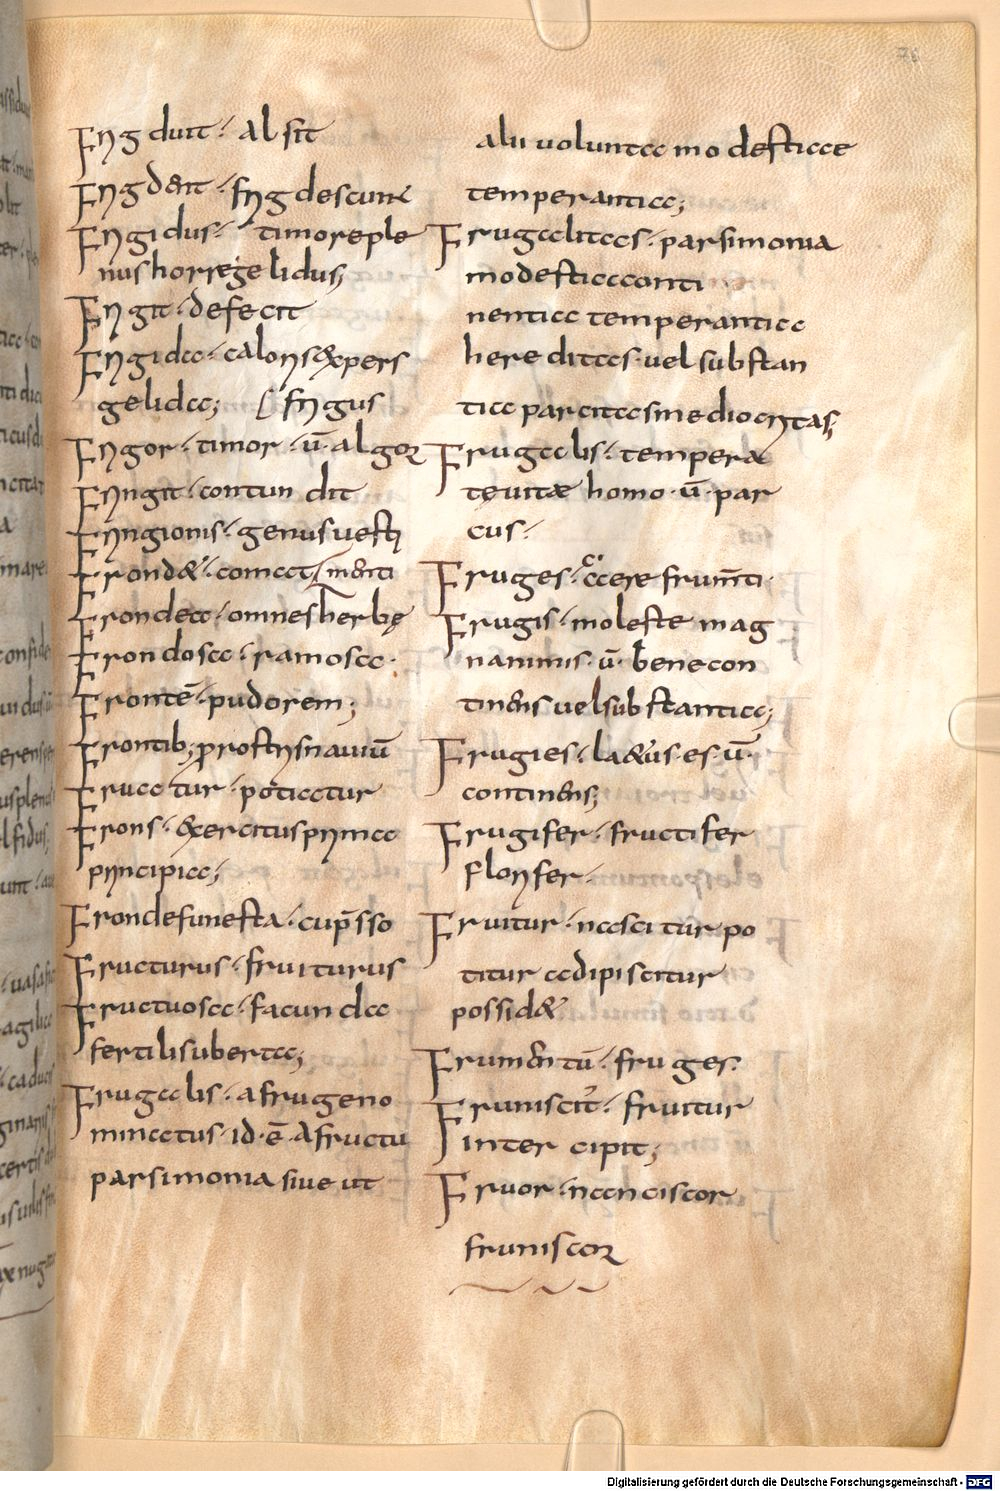 76
Friguit · alsit
Frigdent · frigdescunt
Frigidus · timore ple
nus horre gelidus;
Frigit · defecit
Frigida · caloris expers
gelida; [frigus
Frigor · timor · uł · algor
Fringit · contundit
Fringionis · genus uesti
Frondet · comat [menti
Frondea · omnes herbę
Frondosa · ramosa ·
Frontē · pudorem;
Frontib; pro ostiis nauiū
Fruatur · potiatur
Frons · exercitus prima
principia;
Fronde funesta · cup̄sso
Fructurus · fruiturus
Fructuosa · facunda
fertilis uberta;
Frugalis · a fruge no
minatus · id · ē · a fructu
parsimonia siue ut
alii uolunt a modestia
temperantia;
Frugalitas · parsimonia
modestia conti
nentia temperantia
hereditas uel substan
tia parcitas mediocritas;
Frugalis · tempera
tę uitæ homo · ū · par
cus ·
Fruges · accere frumti ·
Frugis · moleste mag
nanimis · ū · bene con
tinens uel substantia;
Frugies · laetus es · ū ·
continens;
Frugifer · fructifer
florifer ·
Fruitur · nascitur po
titur adipiscitur
possidet
Frumentū · fruges ·
Fruniscit · fruitur
intercipit;
Fruor · nanciscor
fruniscor
Digitalisierung gefördert durch die Deutsche Forschungsgemeinschaft - DFG